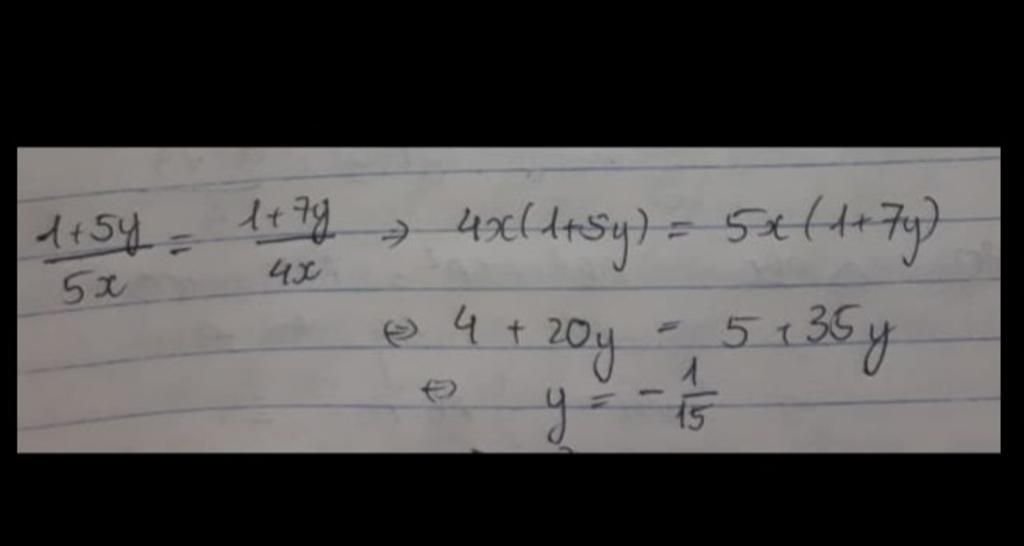 (1+5y)/(5x) = (1+7y)/(4x) ⇒ 4x(1+5y) = 5x(1+7y)
⇔ 4 + 20y = 5 + 35y
⇔ y = -1/15